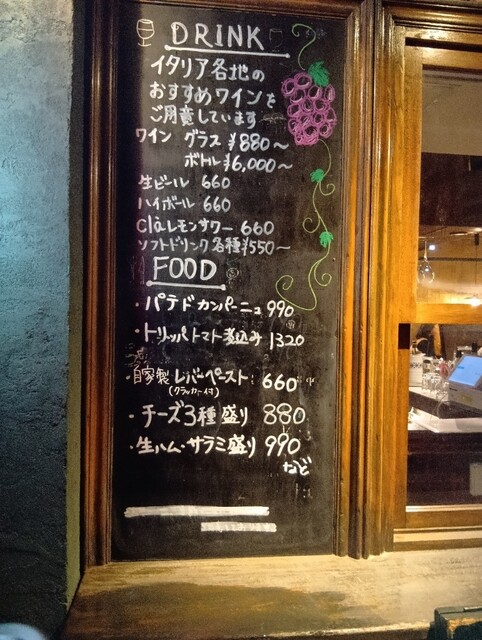 DRINK
イタリア各地の
おすすめワインを
ご用意しています
ワイン グラス ¥880~
ボトル ¥6,000~
生ビール 660
ハイボール 660
Claレモンサワー 660
ソフトドリンク各種 ¥550~
FOOD
・パテドカンパーニュ 990
・トリッパトマト煮込み 1320
・自家製レバーペースト 660
(クラッカー付)
・チーズ3種盛り 880
・生ハム・サラミ盛り 990
など